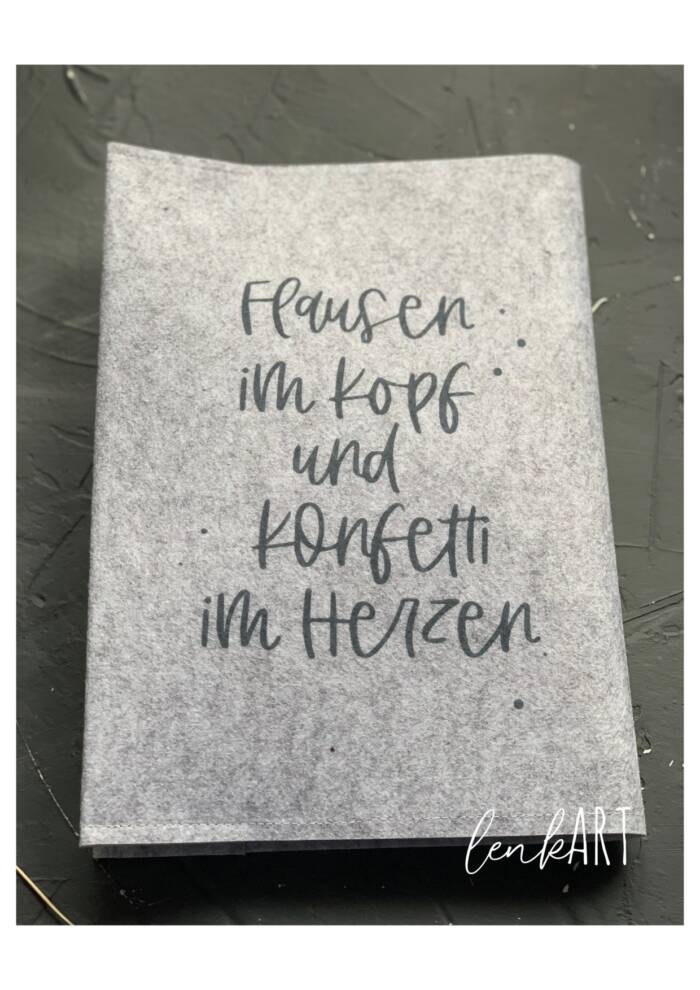 Flausen
im Kopf
und
Konfetti
im Herzen
lenkART